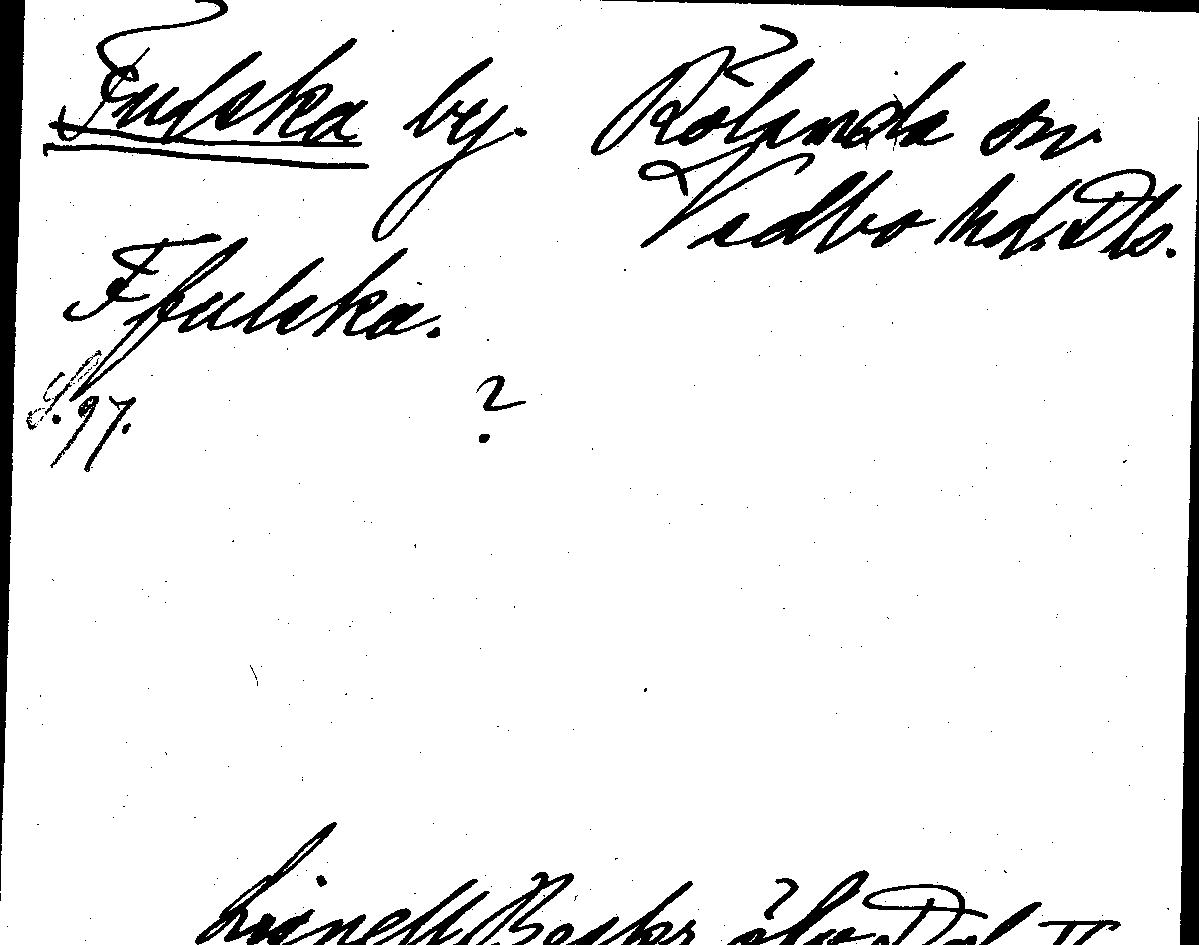 Fulska by. Rölanda sn
Vedbo hd. Dls.
F fulska.
S. 97. ?
Lignell Beskr. öfver Dal II